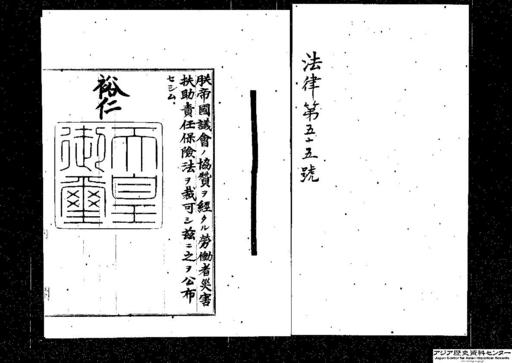 法律第五十五號
朕帝國議會ノ協贊ヲ經タル勞働者災害
扶助責任保險法ヲ裁可シ茲ニ之ヲ公布
セシム
裕仁
天皇
御璽
アジア歴史資料センター
Japan Center for Asian Historical Records